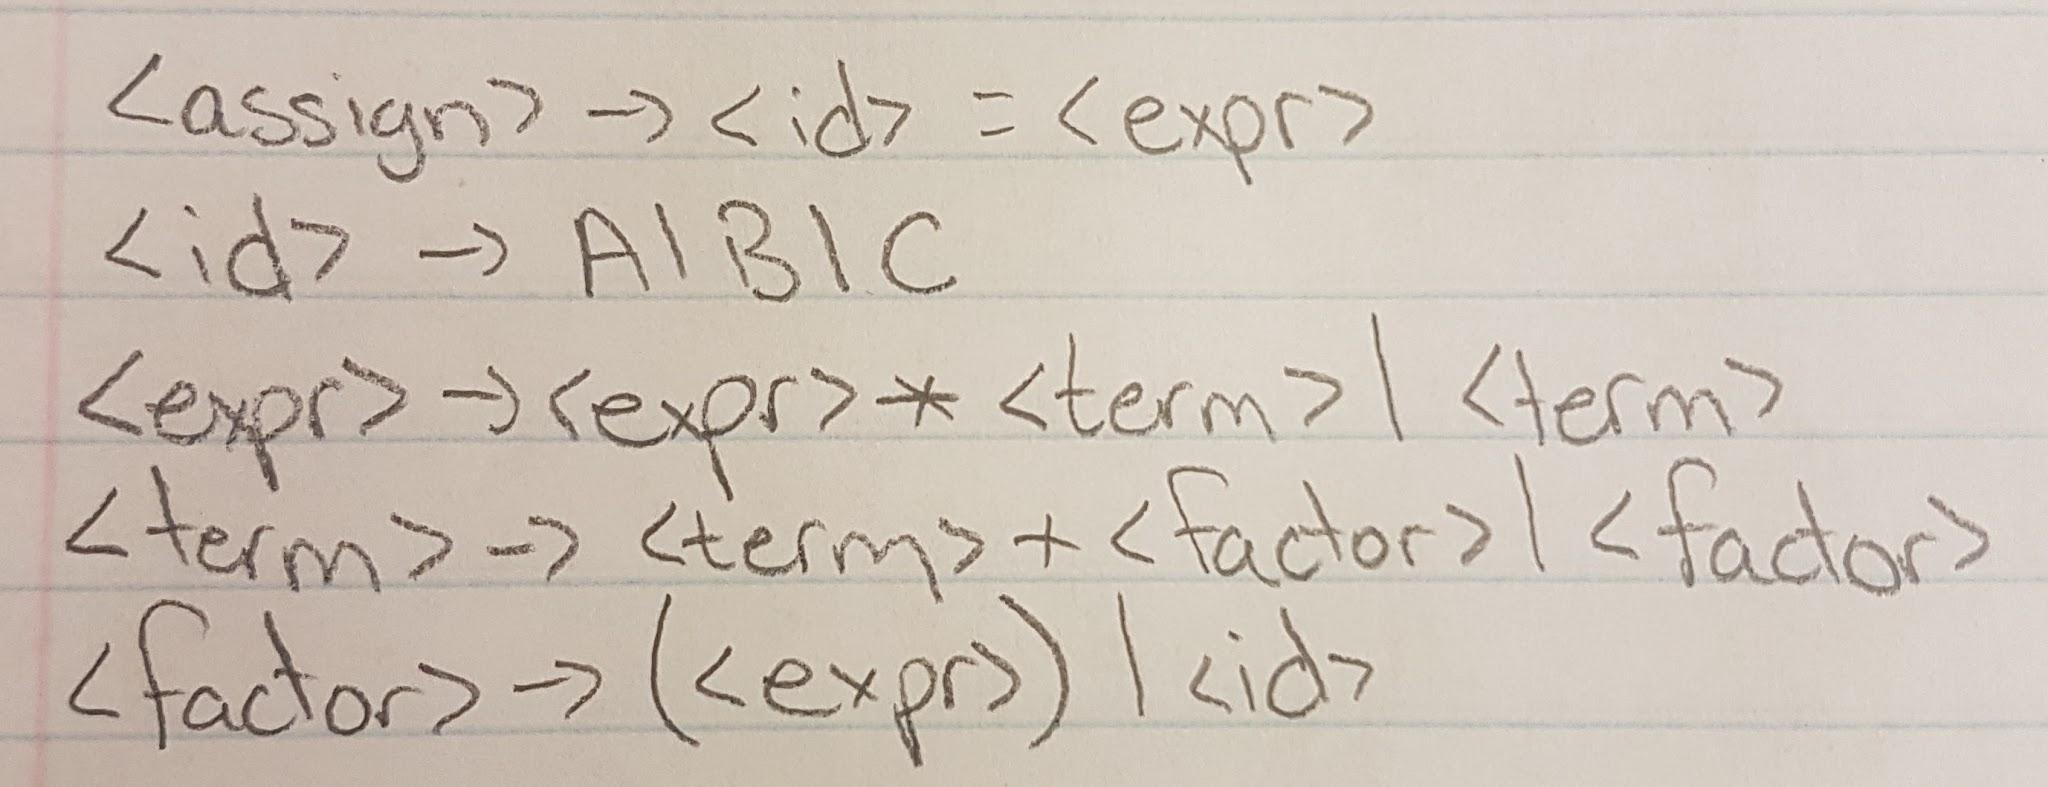 <assign> → <id> = <expr>
<id> → A | B | C
<expr> → <expr> * <term> | <term>
<term> → <term> + <factor> | <factor>
<factor> → (<expr>) | <id>